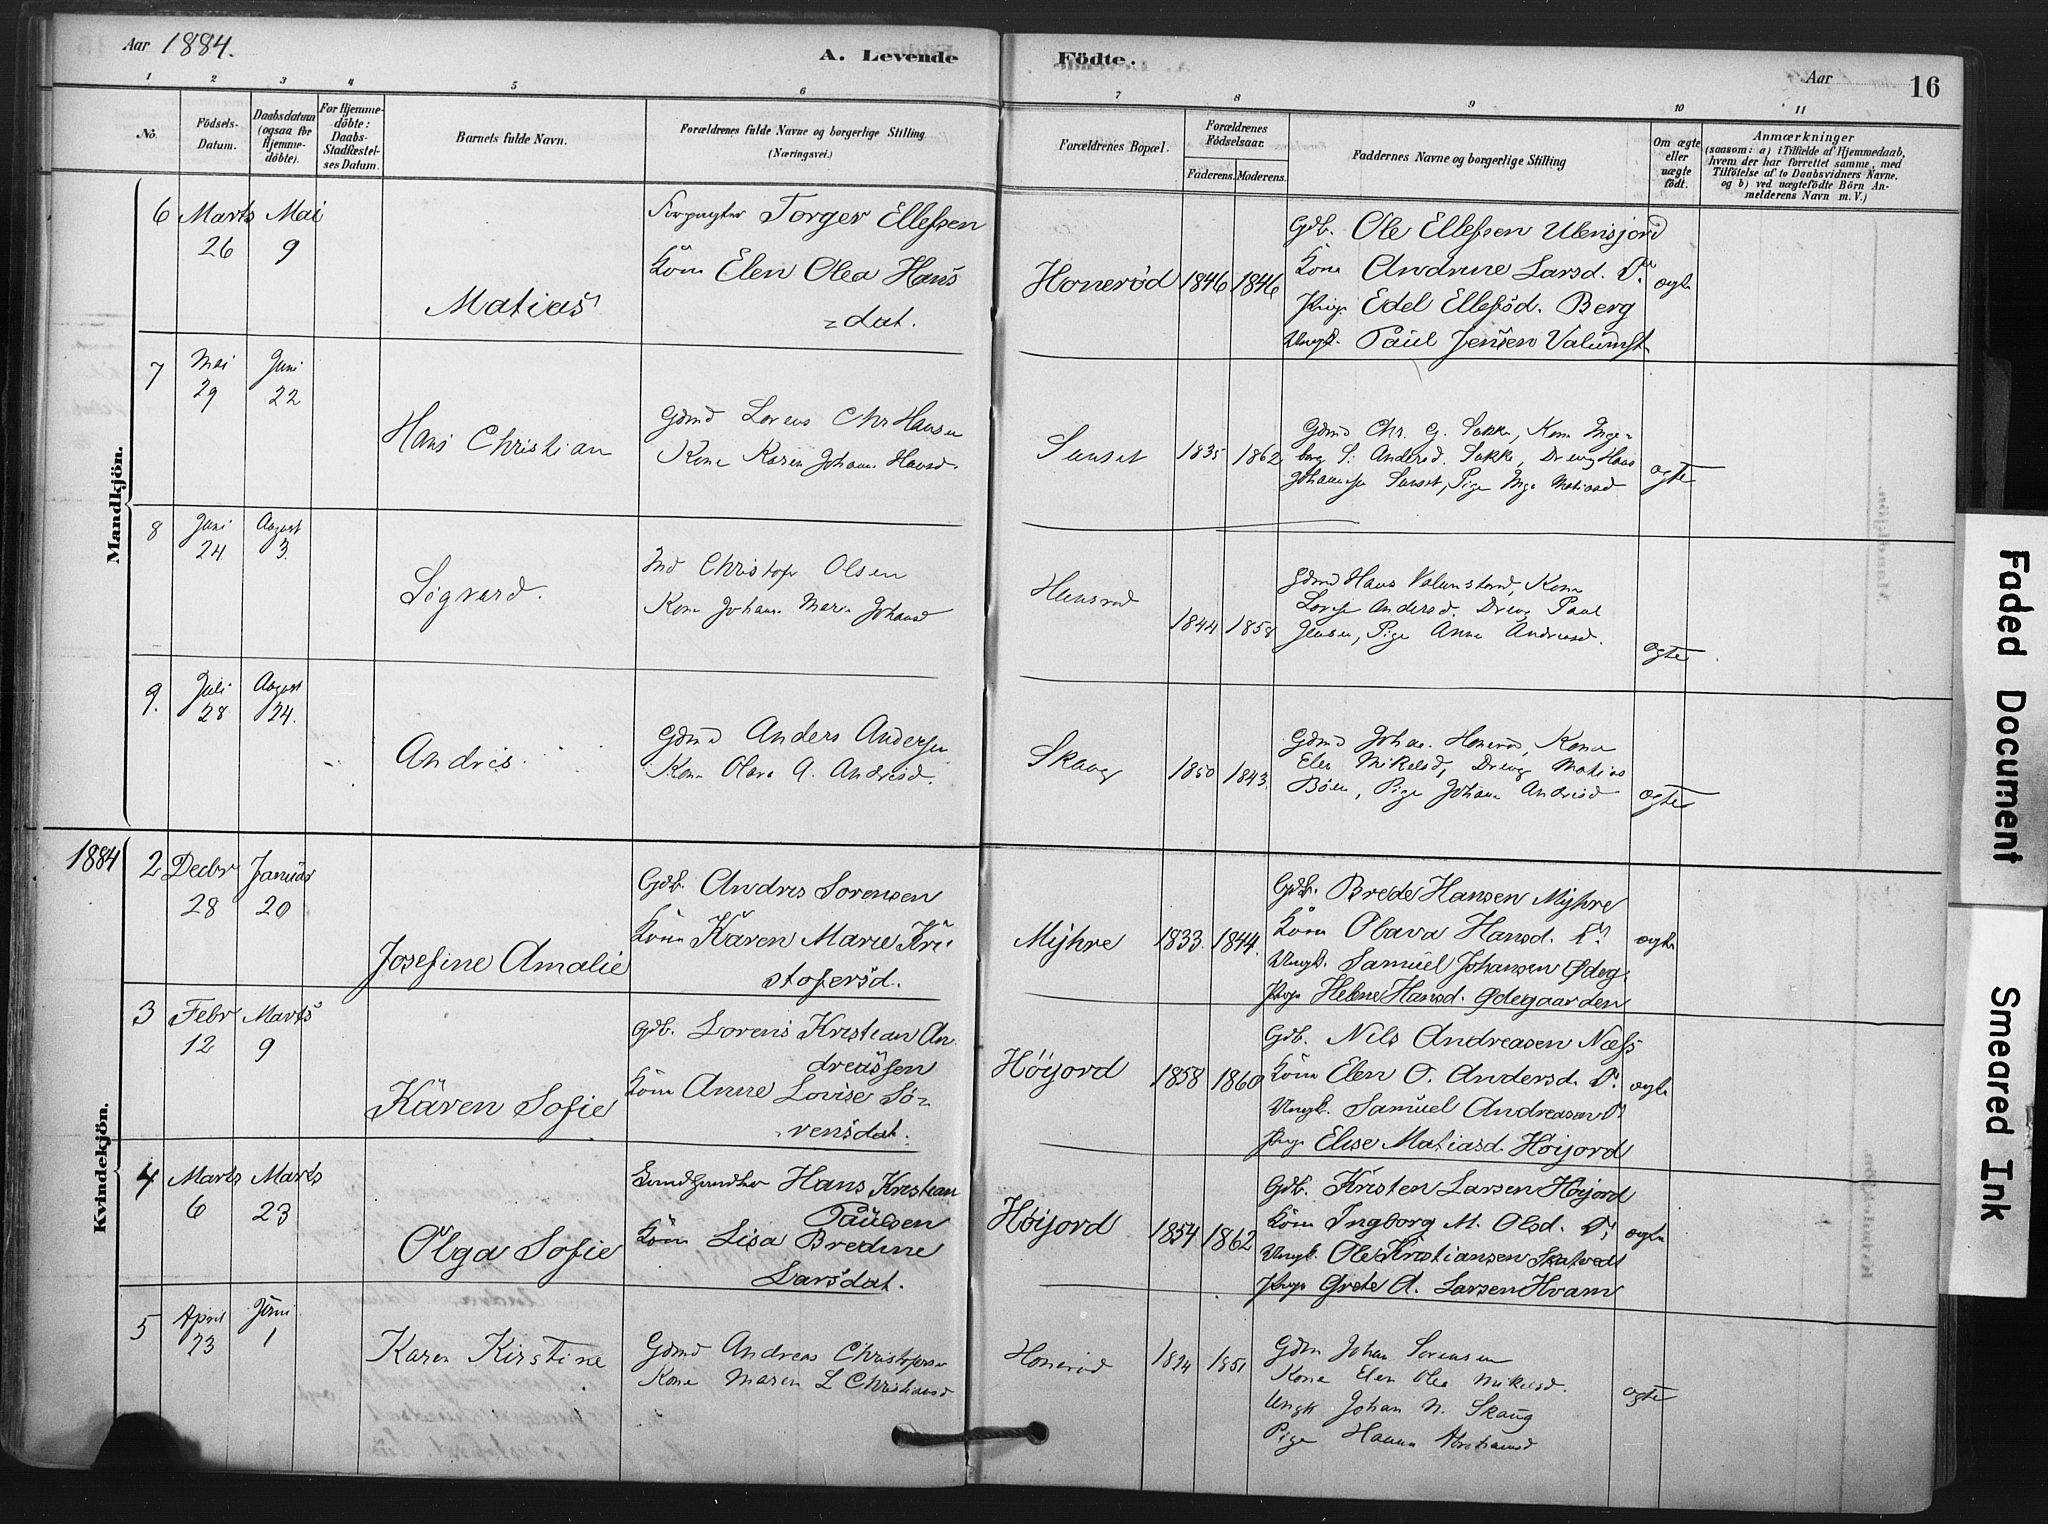 Aar 1884.
A. Levende Födte.
Aar 16
1 2 3 4 5 6 7 8 9 10 11
No.
Födsels-Datum.
Daabsdatum (ogsaa for Hjemme-döbte).
For Hjemme-döbte: Daabs-Stadfæstel-ses Datum.
Barnets fulde Navn.
Forældrenes fulde Navne og borgerlige Stilling (Næringsvei.)
Forældrenes Bopæl.
Forældrenes Födselsaar.
Faderens. Moderens.
Faddernes Navne og borgerlige Stilling
Om ægte eller uægte födt.
Anmærkninger
(saasom: a) i Tilfælde af Hjemmedaab, hvem der har forrettet samme, med Tilföielse af to Daabsvidners Navne. og b) ved uægtefödte Börn An-melderens Navn m. V.)
Mandkjön.
6 Marts 26 Mai 9
Matias
Forpagter Torger Ellefsen
Kone Elen Olea Hans
=dat.
Honerød 1846 1846
Gdb. Ole Ellefsen Ulensjord
Kone Andrine Larsd. Do
Pige Edel Ellefsd. Berg
Ungk. Paul Jensen Valumst
ægte
7 Mai 29 Juni 22
Hans Christian
Gdmd Lorens Chr Hansen
Kone Karen Johan. Hansd.
Sunset 1835 1862
Gdmd Chr. G. Sukke, Kone Inge-
borg S. Andersd. Sukke, Dreng Hans
Johannesen Sunset, Pige Inge Matiasd
ægte
8 Juni 24 August 3.
Sigvard.
Ind Christofer Olsen
Kone Johan Marie Johansd
1844 1858
Gdmd Hans Valumstrød, Kone
Lovise Andersd. Dreng Paul
Jensen, Pige Anne Andreasd.
ægte
9. Juli 28 August 24.
Andris.
Gdmd Anders Andersen
Kone Olava A. Andrisd.
Skaug 1850 1843.
Gdmd Johan. Honerød, Kone
Elen Mikelsd, Dreng Matias
Böen, Pige Johan Andrisd
ægte
1884
Kvindekjön.
2 Decbr 28 Januar 20
Josefine Amalie
Gdb. Andres Sorensen
Kone Karen Marie Kri
stofersd.
Mijhre 1833. 1844.
Gdb. Brede Hansen Mijhre
Kone Olava Hansd. Do
Ungk. Samuel Johansen Ødeg.
Pige Helene Hansd. Ødegaarden
ægte
3 Febr 12 Marts 9
Karen Sofie
Gdb. Lorens Kristian An
dreassen
Kone Anne Lovise Sø-
rensdat.
Höijord 1858 1860
Gdb. Nils Andreasen Næss
Kone Elen O. Andersd. Do
Ungk. Samuel Andreasen Do
Pige Elise Matiasd. Höijord
ægte
4 Marts 6 Marts 23
Olga Sofie
Landhandler Hans Kristian
Paulsen
Kone Lisa Bredine
Larsdat.
Höijord 1854 1862
Gdb. Kristen Larsen Höijord
Kone Ingborg M. Olsd. Do
Ungk. Ole Kristiansen Skatvedt
Pige Grete A. Larsen Hvam
ægte
5 April 23 Juni 1
Karen Kirstine
Gdmd Andreas Christofersen
Kone Maren L Christiansd
Honerød 1851
Gdmd Johan Sorensen
Kone Elen Olea Mikelsd.
Ungk Johan N. Skaug
Pige Hanna
ægte
Faded Document
Smeared Ink